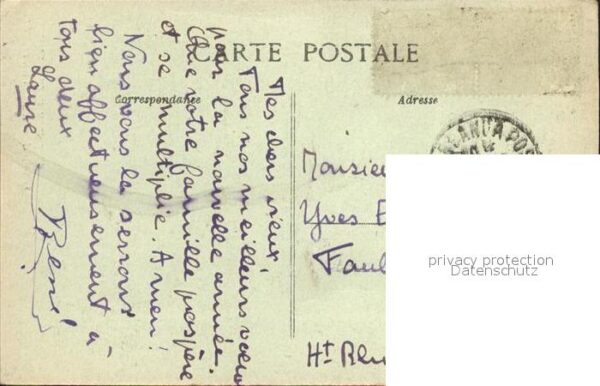 CARTE POSTALE
Correspondance
Adresse
Mes chers vieux,
Tous nos meilleurs voeux
pour la nouvelle année.
Que votre famille prospère
et se multiplie. Amen!
Nous vous la serrons
bien affectueusement à
tous deux
Laure
René
Monsieur
Yves
Faul
Ht
privacy protection
Datenschutz